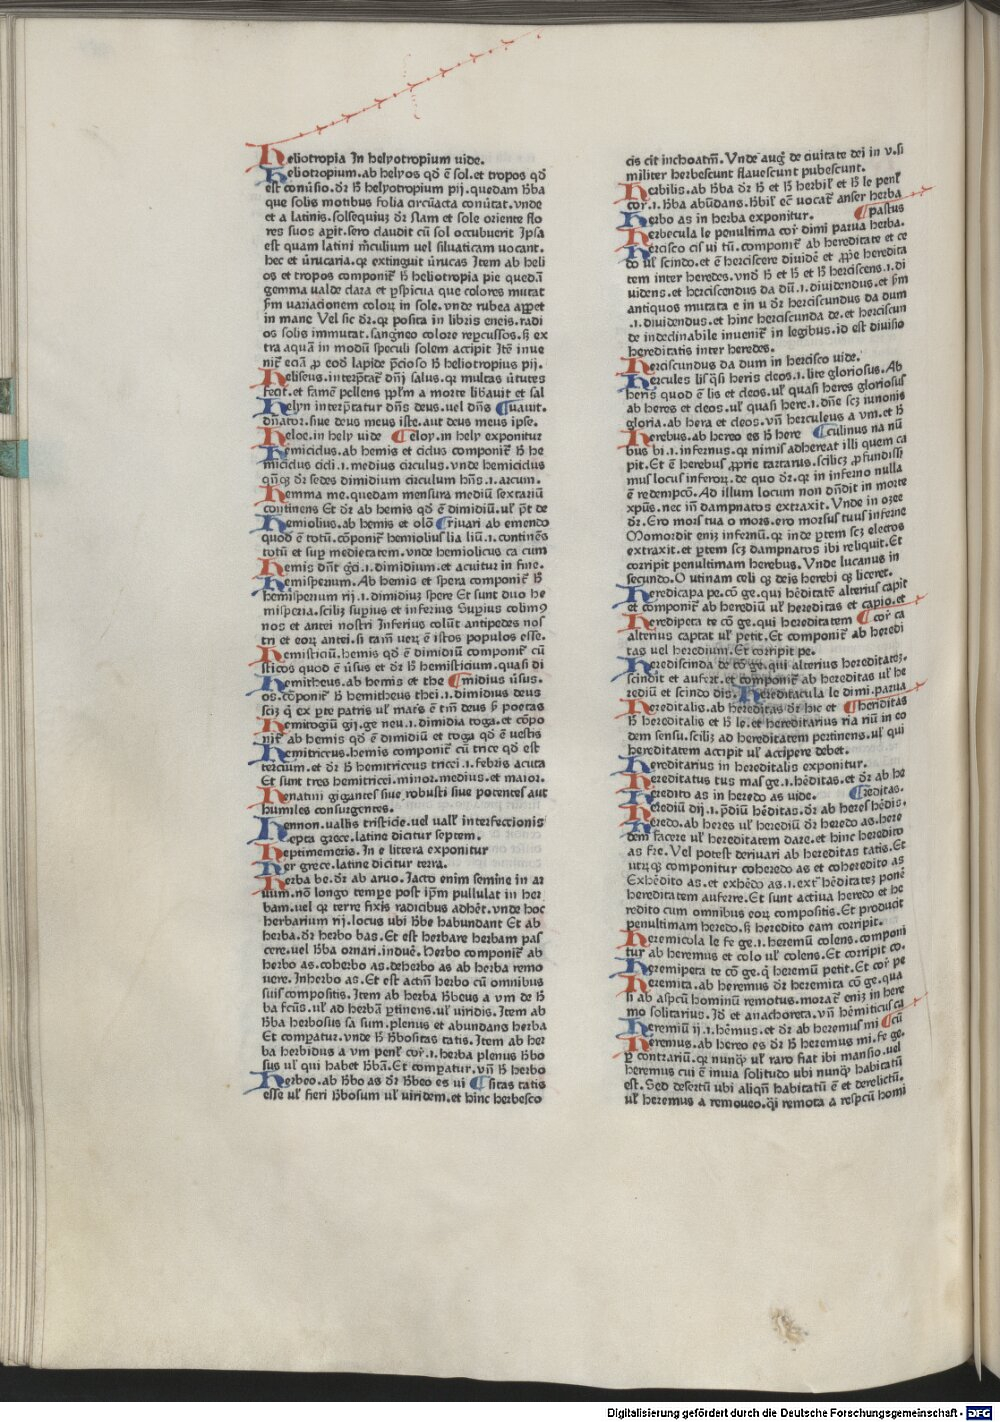 Heliotropia In helyotropium uide.
Heliotropium.ab helyos qđ ē sol.et tropos qđ
est conūsio.dr̄ h̄ helyotropium pij.quedam h̄ba
que solis motibus folia circūacta conūtat.vnde
et a latinis.solsequiuʒ dr̄ nam et sole oriente flo
res suos apit.sero claudit cū sol occubuerit Ipsa
est quam latini īticulum uel siluaticam uocant.
hec et ūrucaria.qr extinguit ūrucas Item ab heli
os et tropos componit̄ h̄ heliotropia pie quedā
gemma ualde clara et pspicua que colores mutat
s̄m uariacionem coloꝝ in sole.vnde rubea appet
in mane Vel sic dr̄.qr posita in libris eneis.radi
os solis immutat.sangneo colore repcussos.s̄ ex
tra aquā in modū speculi solem accipit Itē inue
nit̄ eciā p eođ lapide p̄cioso h̄ heliotropius pij.
Heliseus.interp̄tat̄ dn̄i salus.qr multas ūtutes
fecit.et famē pellens pp̄lm a morte lib̄auit et sal
Helyn interp̄tatur dn̄s deus.uel dn̄s ¶uauit.
dn̄ator.siue deus meus iste.aut deus meus ipse.
Heloe.in hely uide ¶eloy.in hely exponitur
Hemiciclus.ab hemis et ciclus componit̄ h̄ he
miciclus cicli.i.medius circulus.vnde hemiciclus
qn̄qʒ dr̄ sedes dimidium circulum hn̄s.i.arcum.
Hemma me.quedam mensura mediū sextariū
continens Et dr̄ ab hemis qđ ē dimidiū.ul̄ p̄t de
Hemiolius.ab hemis et olō ¶riuari ab emendo
quod ē totū.cōponit̄ hemiolius lia liū.i.continēs
totū et sup medietatem.vnde hemiolicus ca cum
Hemis dn̄t gc̄i.i.dimidium.et acuitur in fine.
Hemisperium.Ab hemis et spera componit̄ h̄
hemisperium rij.i.dimidiuʒ spere Et sunt duo he
misperia.sciliʒ supius et inferius Supius colimꝰ
nos et antei nostri Inferius colūt antipedes nos
tri et eoꝝ antei.si tam̄ ueꝝ ē istos populos esse.
Hemisticiū.hemis qđ ē dimidiū componit̄ cū
sticos quod ē ūsus et dr̄ h̄ hemisticium.quasi di
Hemitheus.ab hemis et the ¶midius ūsus.
os.cōponit̄ h̄ hemitheus thei.i.dimidius deus
sciʒ q̄ ex pte patris ul̄ mat̄s ē tm̄ deus s̄ poetas
Hemitogiū gij.ge neu.i.dimidia toga.et cōpo
nit̄ ab hemis qđ ē dimidiū et toga qđ ē uestis
Hemitriceus.hemis componit̄ cū trice qđ est
tercium.et dr̄ h̄ hemitriceus tricei.i.febris acuta
Et sunt tres hemitricei.minor.medius.et maior.
Henatini gigantes siue robusti siue potentes aut
humiles consurgentes.
Hennon.uallis tristicie.uel uall̄ interfeccionis
Hepta grece.latine dicitur septem.
Heptimemeris.In e littera exponitur
Her grece.latine dicitur terra.
Herba be.dr̄ ab aruo.Iacto enim semine in ar
uum.nō longo tempe post ip̄m pullulat in her
bam.uel qr terre fixis radicibus adhēt.vnde hoc
herbarium rij.locus ubi h̄be habundant Et ab
herba.dr̄ herbo bas.Et est herbare herbam pas
cere.uel h̄ba ornari.induē.Herbo componit̄ ab
herbo as.coherbo as.deherbo as ab herba remo
uere.Inherbo as.Et est actiū herbo cū omnibus
suis compositis.Item ab herba h̄beus a vm de h̄
ba fc̄us.ul̄ ad herbā ptinens.ul̄ uiridis.Item ab
h̄ba herbosus sa sum.plenus et abundans herba
Et compatur.vnde h̄ h̄bositas tatis.Item ab her
ba herbidus a vm penl̄ cor̄.i.herba plenus h̄bo
sus ul̄ qui habet h̄bā.Et compatur.vn̄ h̄ herbo
Herbeo.ab h̄bo as dr̄ h̄beo es ui ¶sitas tatis
esse ul̄ fieri h̄bosum ul̄ uiridem.et hinc herbesco
cis cit inchoatiū.Vnde auḡ de ciuitate dei in v.si
militer herbescunt flauescunt pubescunt.
Herbilis.ab h̄ba dr̄ h̄ et h̄ herbil̄ et h̄ le penl̄
cor̄.i.h̄ba abūdans.h̄bil̄ eē uocat̄ anser herba
Herbo as in herba exponitur. ¶pastus
Herbecula le penultima cor̄ dimi parua herba.
Hercisco cis ui tū.componit̄ ab hereditate et ce
do ul̄ scindo.et ē herciscere diuidē et pp̄e heredita
tem inter heredes.vnđ h̄ et h̄ et h̄ herciscens.i.di
uidens.et herciscendus da dū.i.diuidendus.et s̄m
antiquos mutata e in u dr̄ herciscundus da dum
.i.diuidendus.et hinc herciscunda de.et herciscun
de indeclinabile inuenit̄ in legibus.id est diuisio
hereditatis inter heredes.
Herciscundus da dum in hercisco uide.
Hercules lis q̄si heris cleos.i.lite gloriosus.Ab
heris quod ē lis et cleos.ul̄ quasi heres gloriosus
ab heres et cleos.ul̄ quasi here.i.dn̄e scʒ iunonis
gloria.ab hera et cleos.vn̄ herculeus a vm.et h̄
Herebus.ab hereo es h̄ here ¶culinus na nū
bus bi.i.infernus.qr nimis adhereat illi quem ca
pit.Et ē herebus pprie tartarus.sciliʒ pfundissi
mus locus inferoꝝ.de quo dr̄.qr in inferno nulla
ē redempcō.Ad illum locum non dn̄dit in morte
xp̄us.nec in̄ dampnatos extraxit.Vnde in oʒee
dr̄.Ero mors tua o mors.ero morsus tuus inferne
Momordit eniʒ infernū.qr inde ptem scʒ electos
extraxit.et ptem scʒ dampnatos ibi reliquit.Et
corripit penultimam herebus.Vnde lucanus in
secundo.O utinam celi qʒ deis herebi qʒ liceret.
Heredicapa pe.cō ge.qui h̄editatē alterius capit
et componit̄ ab herediū ul̄ hereditas et capio.et
Heredipeta te cō ge.qui hereditatem ¶cor̄ ca
alterius captat ul̄ petit.Et componit̄ ab heredi
tas uel heredium.Et corripit pe.
Herediscinda de cō ge.qui alterius hereditateʒ.
scindit et aufert.et componit̄ ab hereditas ul̄ he
rediū et scindo dis. Hereditacula le dimi.parua
Hereditalis.ab hereditas dr̄ hic et ¶hereditas
h̄ hereditalis et h̄ le.et hereditarius ria riū in eo
dem sensu.sciliʒ ad hereditatem pertinens.ul̄ qui
hereditatem accipit ul̄ accipere debet.
Hereditarius in hereditalis exponitur.
Hereditatus tus mas ge.i.h̄editas.et dr̄ ab he
Heredito as in heredo as uide. ¶reditas.
Herediū dij.i.p̄diū h̄editas.dr̄ ab heres h̄edis.
Heredo.ab heres ul̄ herediū dr̄ heredo as.here
dem facere ul̄ hereditatem dare.et hinc heredito
as fre.Vel potest deriuari ab hereditas tatis.Et
utrūqʒ componitur coheredo as et coheredito as
Exh̄edito as.et exh̄edo as.i.ext̄ h̄editateʒ ponē
hereditatem auferre.Et sunt actiua heredo et he
redito cum omnibus eoꝝ compositis.Et producit
penultimam heredo.s̄ heredito eam corripit.
Heremicola le fe ge.i.heremū colens.componi
tur ab heremus et colo ul̄ colens.Et corripit co.
Heremipeta te cō ge.q̄ heremū petit.Et cor̄ pe
Heremita.ab heremus dr̄ heremita cō ge.qua
si ab aspcū hominū remotus.morat̄ eniʒ in here
mo solitarius.Id et anachoreta.vn̄ h̄emiticus ca
Heremiū ij.i.h̄emus.et dr̄ ab heremus mi ¶cū
Heremus.ab hereo es dr̄ h̄ heremus mi.fe ge.
p̄ contrariū.qr nunqʒ ul̄ raro fiat ibi mansio.uel
heremus cui ē inuia solitudo ubi nunqʒ habitatū
est.Sed desertū ubi aliqn̄ habitatū ē et derelictū.
ul̄ heremus a remoueo.q̄i remota a respcū homi
Digitalisierung gefördert durch die Deutsche Forschungsgemeinschaft - DFG